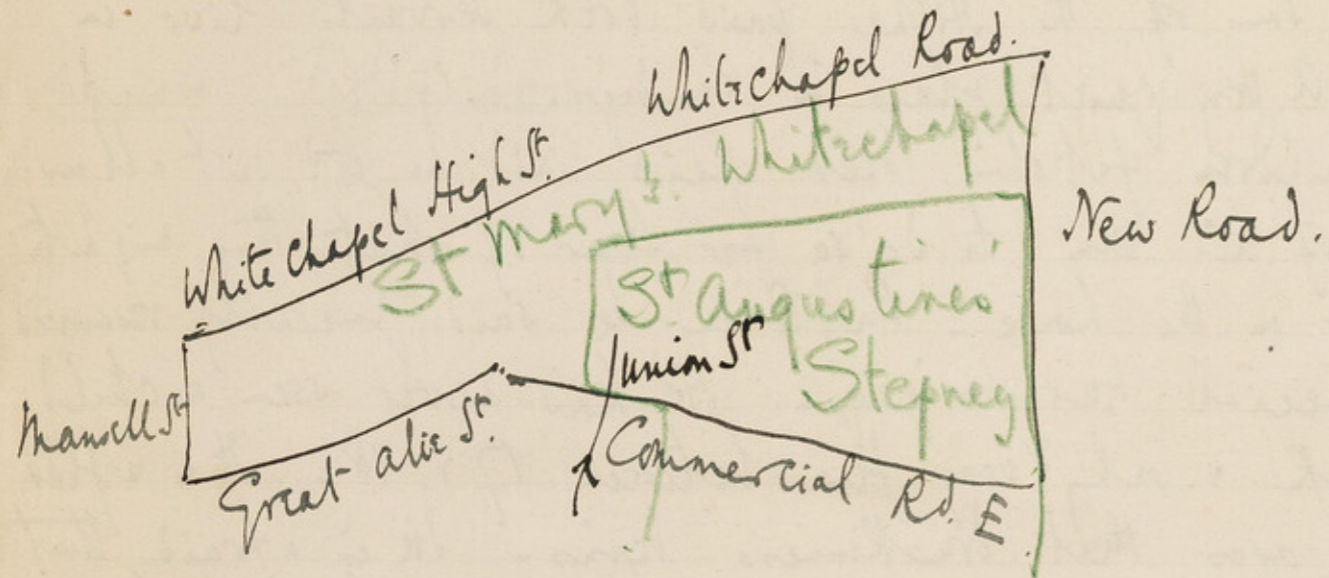 Whitechapel Road.
White Chapel High St.
St Mary's. Whitechapel
New Road.
St. Augustines
Union St
Stepney
Mansell St
Great Alie St.
Commercial Rd. E.